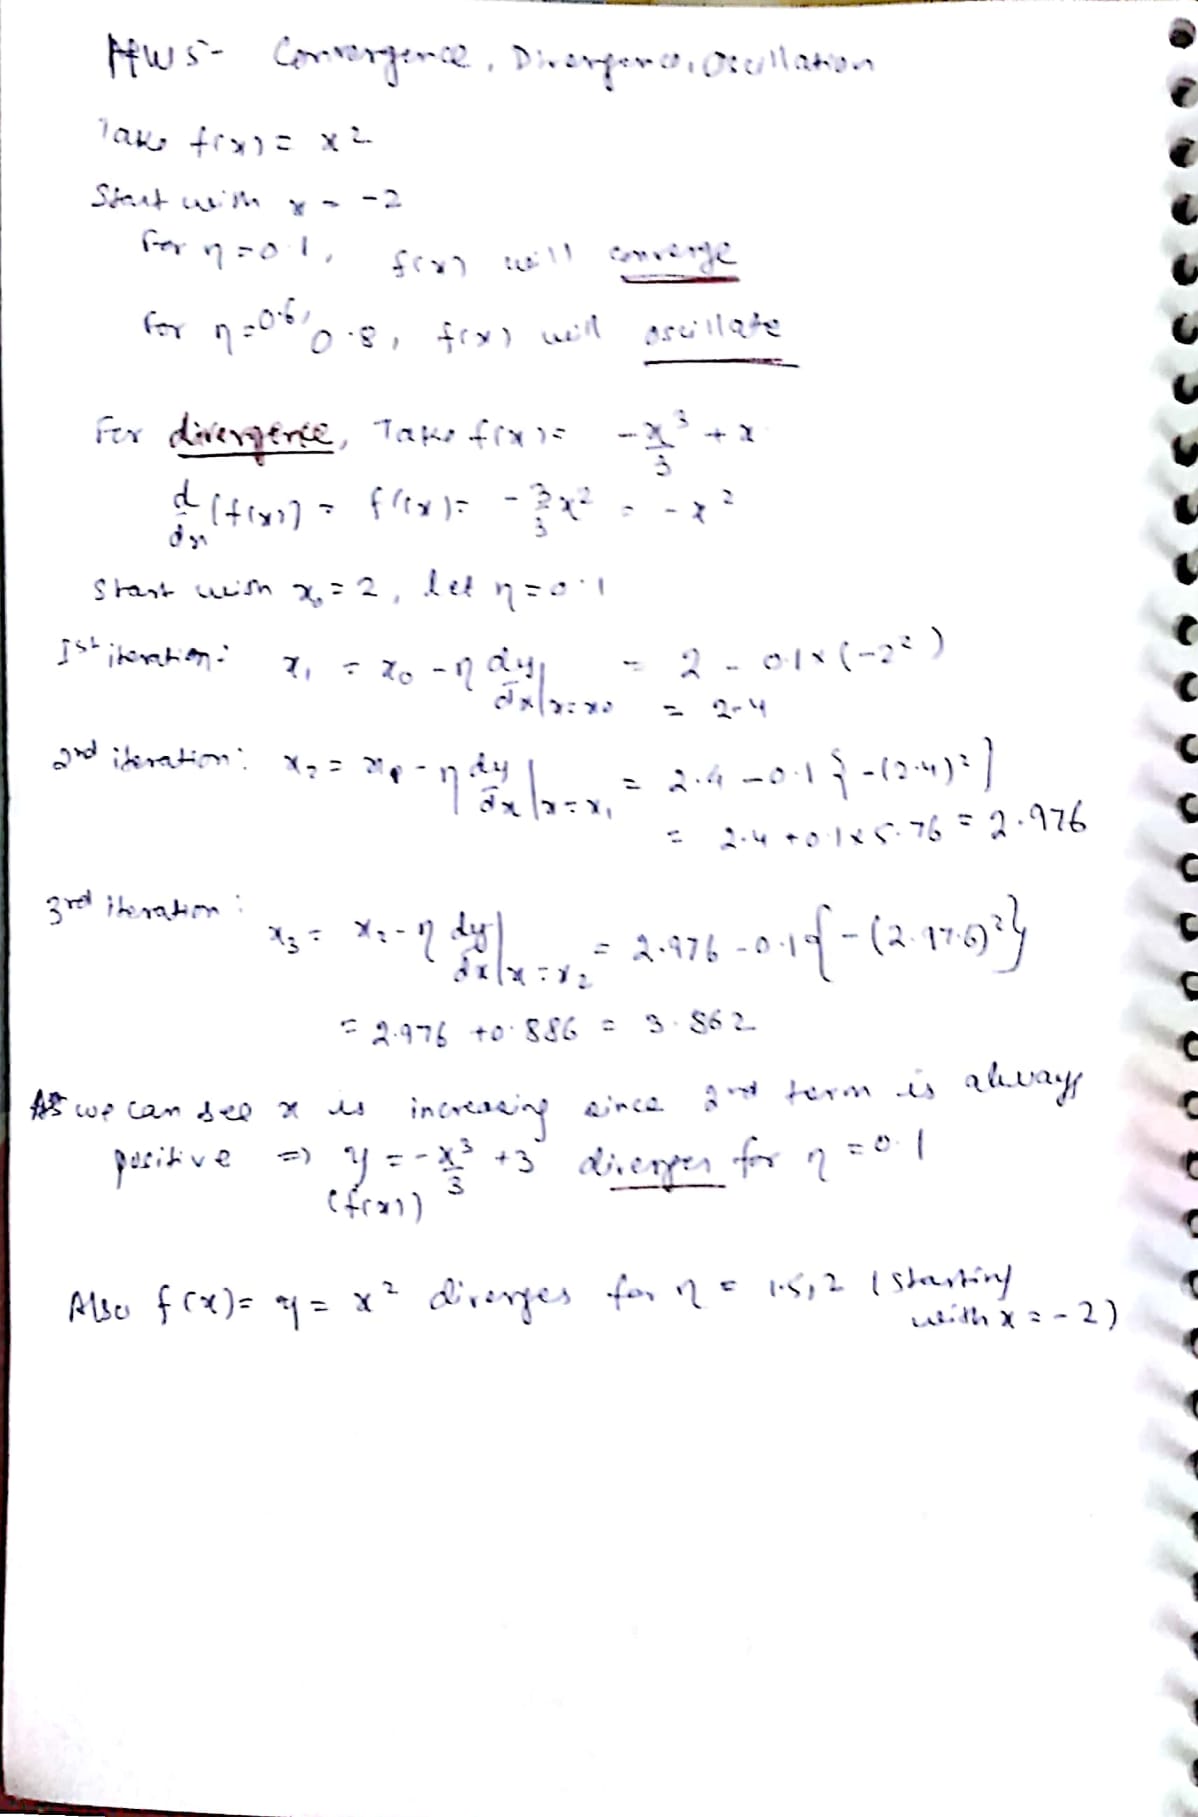 HW5- Convergence, Divergence, Oscillation
Take f(x) = x2
Start with x = -2
For η=0.1, f(x) will converge
for η=0.6, 0.8, f(x) will oscillate
For divergence, Take f(x) = -x³/3 + x
d/dx (f(x)) = f'(x) = -3/3 x² = -x²
Start with x₀ = 2, let η=0.1
Ist iteration: x₁ = x₀ - η dy/dx|x=x₀ = 2 - 0.1x(-2²)
= 2.4
2nd iteration: x₂ = x₁ - η dy/dx|x=x₁ = 2.4 - 0.1{-(2.4)²}
= 2.4 + 0.1x5.76 = 2.976
3rd iteration:
x₃ = x₂ - η dy/dx|x=x₂ = 2.976 - 0.1{-(2.976)²}
= 2.976 + 0.886 = 3.862
As we can see x is increasing since 2nd term is always
positive => y = -x³/3 + 3 diverges for η = 0.1
(f(x))
Also f(x) = y = x² diverges for η = 1.5, 2 (starting
with x = -2)